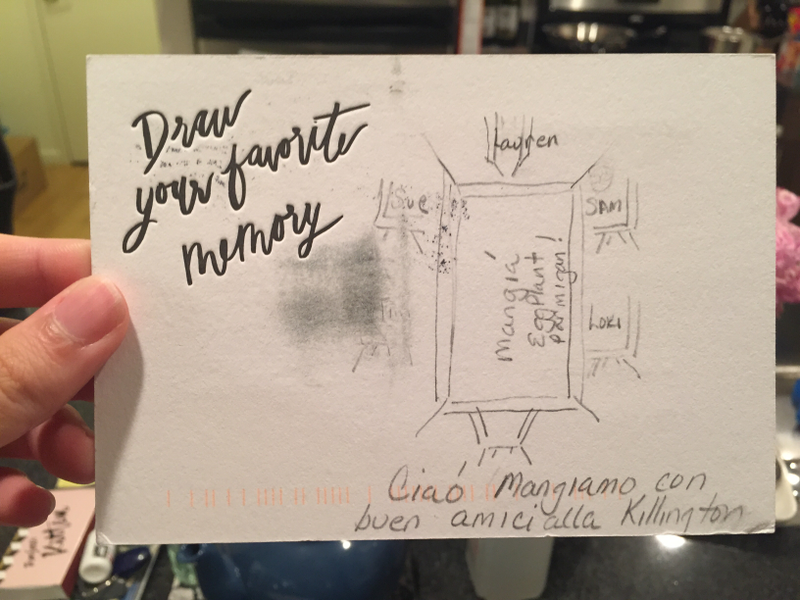 Draw
your favorite
memory
Hayden
Sue
SAM
Mangiá
Eggplant
parmigan!
LOKI
Ciaó Mangiamo con
buen amici alla Killington